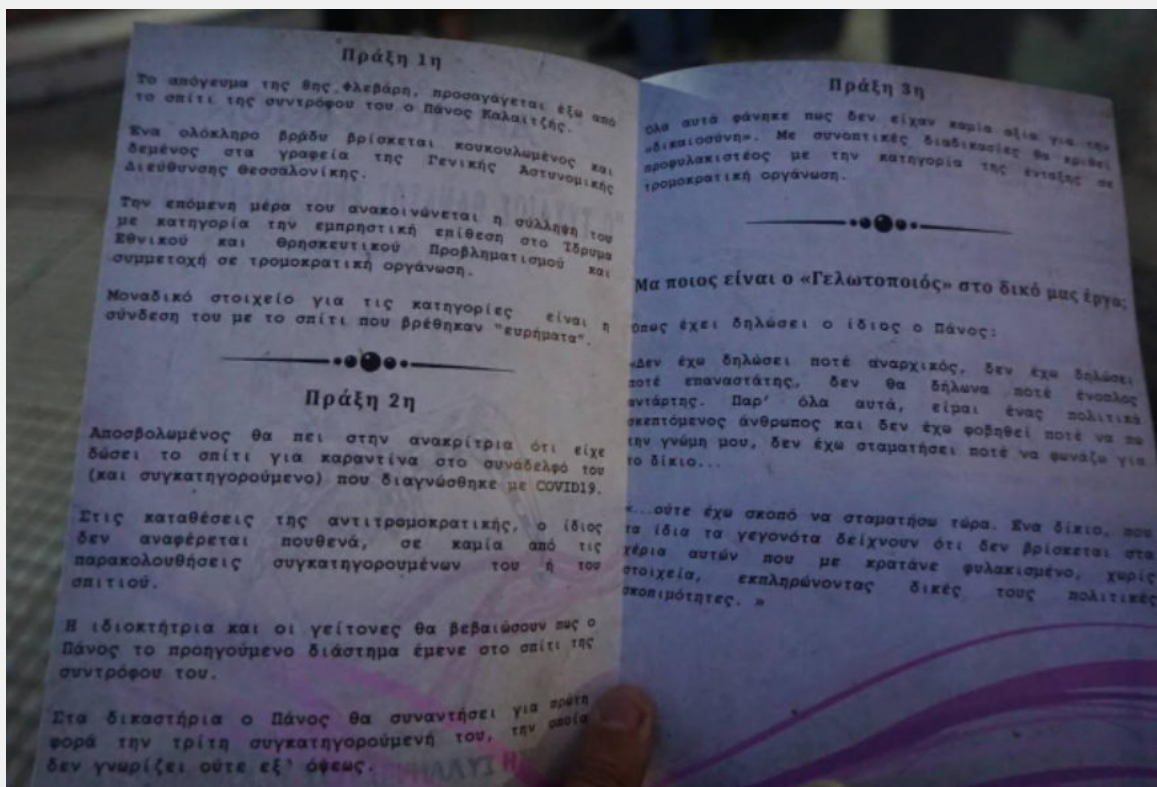 Πράξη 1η
Το απόγευμα της 8ης Φλεβάρη, προσαγάγεται έξω από
το σπίτι της συντρόφου του ο Πάνος Καλαϊτζής.
Ένα ολόκληρο βράδυ βρίσκεται κουκουλωμένος και
δεμένος στα γραφεία της Γενικής Αστυνομικής
Διεύθυνσης Θεσσαλονίκης.
Την επόμενη μέρα του ανακοινώνεται η σύλληψή του
με κατηγορία την εμπρηστική επίθεση στο Ίδρυμα
Εθνικού και Θρησκευτικού Προβληματισμού και
συμμετοχή σε τρομοκρατική οργάνωση.
Μοναδικό στοιχείο για τις κατηγορίες είναι η
σύνδεση του με το σπίτι που βρέθηκαν "ευρήματα".
Πράξη 2η
Αποσβολωμένος θα πει στην ανακρίτρια ότι είχε
δώσει το σπίτι για καραντίνα στο συνάδελφό του
(και συγκατηγορούμενο) που διαγνώσθηκε με COVID19.
Στις καταθέσεις της αντιτρομοκρατικής, ο ίδιος
δεν αναφέρεται πουθενά, σε καμία από τις
παρακολουθήσεις συγκατηγορουμένων του ή του
σπιτιού.
Η ιδιοκτήτρια και οι γείτονες θα βεβαιώσουν πως ο
Πάνος το προηγούμενο διάστημα έμενε στο σπίτι της
συντρόφου του.
Στα δικαστήρια ο Πάνος θα συναντήσει για πρώτη
φορά την τρίτη συγκατηγορούμενή του, την οποία
δεν γνωρίζει ούτε εξ' όψεως.
Πράξη 3η
Όλα αυτά φάνηκε πως δεν είχαν καμία αξία για την
«δικαιοσύνη». Με συνοπτικές διαδικασίες θα κριθεί
προφυλακιστέος με την κατηγορία της ένταξης σε
τρομοκρατική οργάνωση.
Μα ποιος είναι ο «Γελωτοποιός» στο δικό μας έργο;
Όπως έχει δηλώσει ο ίδιος ο Πάνος:
«Δεν έχω δηλώσει ποτέ αναρχικός, δεν έχω δηλώσει
ποτέ επαναστάτης, δεν θα δήλωνα ποτέ ένοπλος
αντάρτης. Παρ' όλα αυτά, είμαι ένας πολιτικά
σκεπτόμενος άνθρωπος και δεν έχω φοβηθεί ποτέ να πω
την γνώμη μου, δεν έχω σταματήσει ποτέ να φωνάζω για
το δίκιο...
«...ούτε έχω σκοπό να σταματήσω τώρα. Ένα δίκιο, που
τα ίδια τα γεγονότα δείχνουν ότι δεν βρίσκεται στα
χέρια αυτών που με κρατάνε φυλακισμένο, χωρίς
στοιχεία, εκπληρώνοντας δικές τους πολιτικές
σκοπιμότητες. »